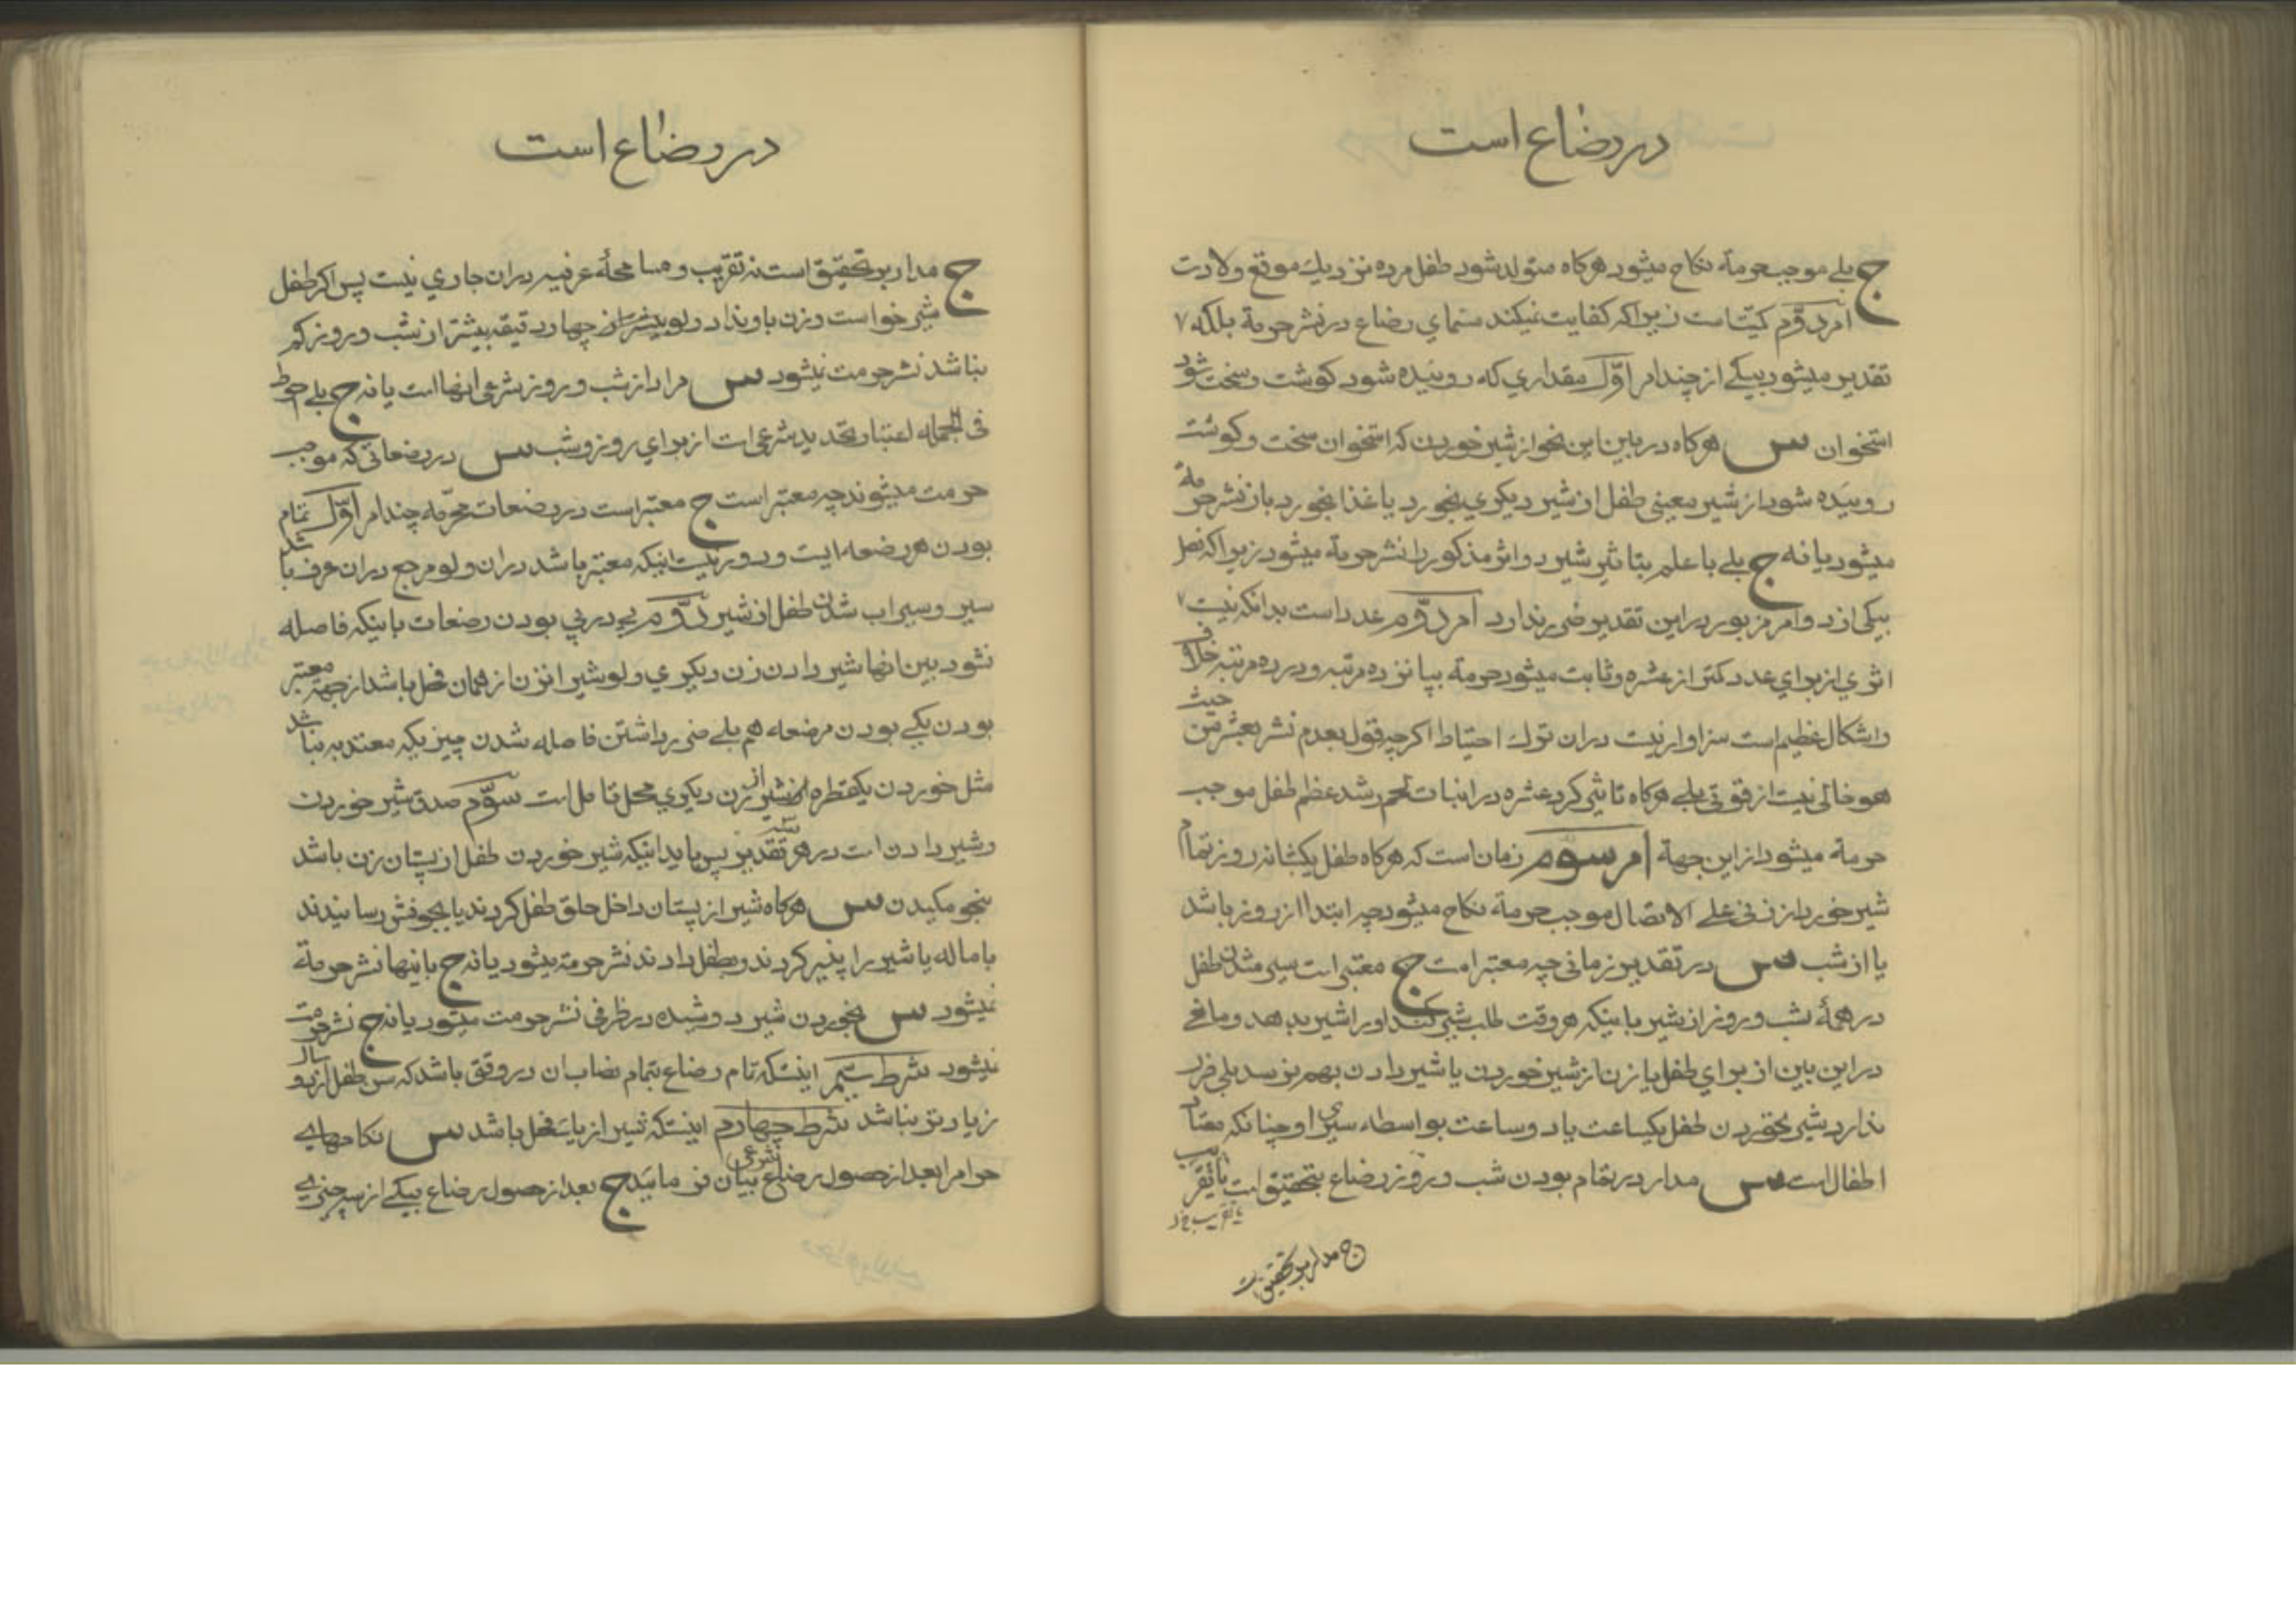 در رضاع است
ج بلے موجب حرمة نکاح میشود هرکاه متولد شود طفل مرده نزدیك موقع ولادت
امر دوّم کمیّت است زیراکه کفایت نمیکند مسمای رضاع در نشر حرمة بلکه
تقدیر میشود بیکے از چند امر اوّل مقداري که روئیده شود کوشت و سخت شود
استخوان س هرکاه در بین این نحو از شیر خوردن که استخوان سخت و کوشت
روئیده شود از شیر معینی طفل از شیر دیکري بخورد یا غذا بخورد باز نشر حرمة
میشود یا نه ج بلے با علم بتاثیر شیر دو اثر مذکور را نشر حرمة میشود زیراکه فصل
بیکی از دو امر مزبور در این تقدیر ضرر ندارد امر دوّم عدد است بدانکه نیست
اثري از براي عدد کمتر از عشره و ثابت میشود حرمة بپانزده مرتبه و در ده مرتبه خلاف
و اشکال عظیم است سزاوار نیست دران ترك احتیاط اکرچه قول بعدم نشر بعشر من حیث
هو خالی نیست از قوتی بلے هرکاه تاثیر کرد عشره در انبات لحم و شد عظم طفل موجب
حرمة میشود از این جهة امر سوّم زمان است که هرکاه طفل یکشبانه روز تمام
شیر خورد از زنی علے الاتصال موجب حرمة نکاح میشود چه ابتدا از روز باشد
یا از شب س در تقدیر زمانی چه معتبر است ج معتبر است سیر شدن طفل
در همهٔ شب و روز از شیر باینکه هر وقت طلب شیر کند او را شیر بدهد و مانعے
در این بین از براي طفل یا زن از شیر خوردن یا شیر دادن بهم نرسد بلی ضرر
ندارد شیر نخوردن طفل یکساعت یا دو ساعت بواسطه سیري او چنانکه معتاد
اطفال است س مدار در تمام بودن شب و روز رضاع بتحقیق است یا تقریب
یا تقریب
ج مدار بر تحقیق است
در رضاع است
ج مدار بر تحقیق است نه تقریب و مسامحهٔ عرفیه دران جاري نیست پس اکر طفل
شیر خواست و زن باو نداد ولو بیشتر از چهار دقیقه بیشتر از شب و روز کم
نباشد نشر حرمت نمیشود س مراد از شب و روز شرعی انهااست یا نه ج بلے احوط
فی الجمله اعتبار تحدید شرعی است از براي روز و شب س در رضعاتی که موجب
حرمت میشوند چه معتبر است ج معتبر است در رضعات محرّمه چند امر اوّل تمام
بودن هر رضعه ایست و دور نیست اینکه معتبر باشد دران ولو مرجع دران عرف باشد
سیر و سیراب شدن طفل از شیر دوّم پے در پي بودن رضعات باینکه فاصله
نشود بین انها شیر دادن زن دیکري ولو شیر انزن از همان فحل باشد از جهة معتبر
بودن یکے بودن مرضعه هم بلے ضرر داشتن فاصله شدن چیزیکه معتد به نباشد
مثل خوردن یکقطره از شیر از زن دیکري محل تامل است سوّم صدق شیر خوردن
و شیر دادن است در هر تقدیر پس باید اینکه شیر خوردن طفل از پستان زن باشد
بنحو مکیدن س هرکاه شیر از پستان داخل حلق طفل کردند یا بجوفش رسانیدند
باماله یا شیر را پنیر کردند و بطفل دادند نشر حرمة میشود یا نه ج باینها نشر حرمة
نمیشود س بخوردن شیر دوشیده در ظرفی نشر حرمت میشود یا نه ج نشر حرمت
نمیشود شرط سیّم اینستکه تمام رضاع بتمام نصاب ان در وقتی باشد که سن طفل از دو سال
زیادتر نباشد شرط چهارم اینستکه شیر از یك فحل باشد س نکاحهاے
حرام را بعد از حصول رضاع شرعی بیان فرمائید ج بعد از حصول رضاع بیکے از سه چیزے